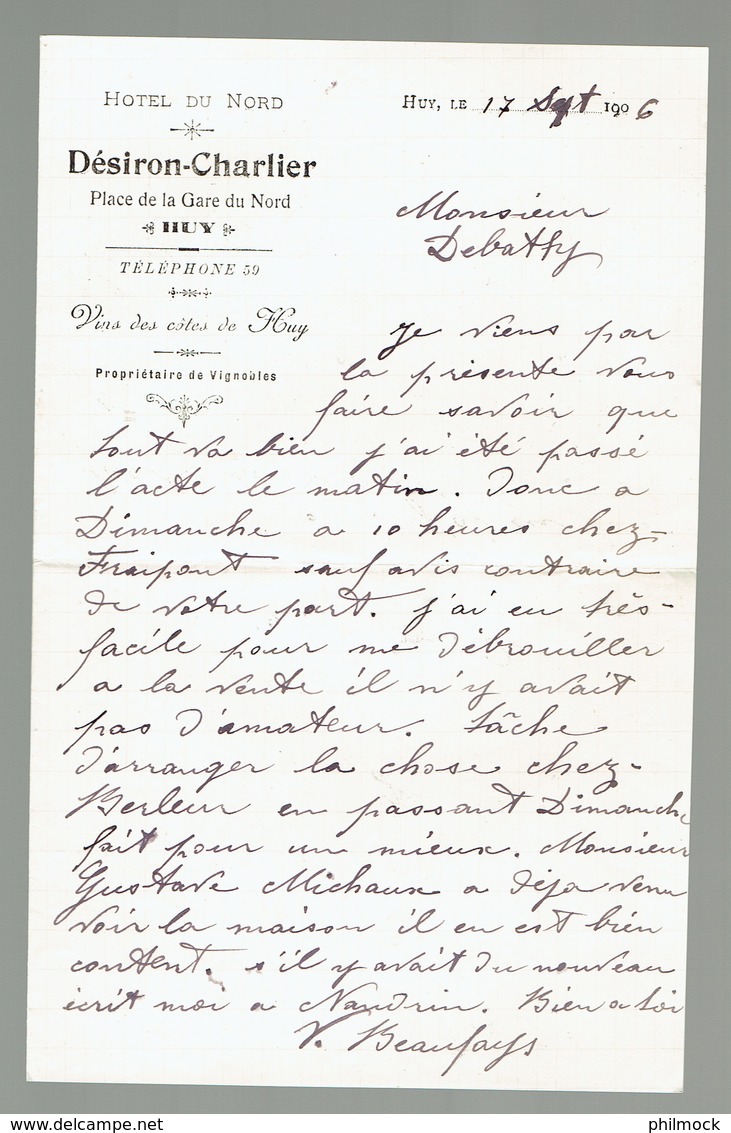 HOTEL DU NORD
Désiron-Charlier
Place de la Gare du Nord
HUY
TÉLÉPHONE 59
Vins des côtes de Huy
Propriétaire de Vignobles
HUY, LE 17 Sept 1906
Monsieur
Debatty
Je viens par
la présente vous
faire savoir que
tout va bien j'ai été passé
l'acte le matin. Donc a
Dimanche a 10 heures chez
Fraipont sauf avis contraire
de votre part. j'ai eu très
facile pour me débrouiller
a la vente il n'y avait
pas d'amateur. tâche
d'arranger la chose chez
Berleur en passant Dimanche
fait pour un mieux. Monsieur
Gustave Michaux a déja venu
voir la maison il en est bien
content. s'il y avait du nouveau
écrit moi a Nandrin. Bien a toi
V. Beaufays
philmock